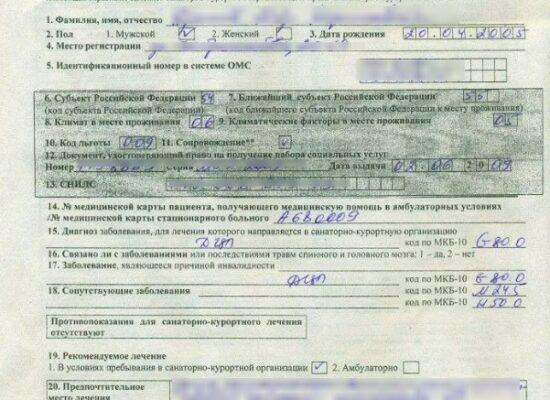 1. Фамилия, имя, отчество
2. Пол 1. Мужской 2. Женский 3. Дата рождения 20.04.2005
4. Место регистрации
5. Идентификационный номер в системе ОМС
6. Субъект Российской Федерации 54 7. Ближайший субъект Российской Федерации 55
(код субъекта Российской Федерации) (код ближайшего субъекта Российской Федерации к месту проживания)
8. Климат в месте проживания 06 9. Климатические факторы в месте проживания
10. Код льготы 009 11. Сопровождение**
12. Документ, удостоверяющий право на получение набора социальных услуг
Номер Дата выдачи 02.06 2009
13. СНИЛС
14. № медицинской карты пациента, получающего медицинскую помощь в амбулаторных условиях
/№ медицинской карты стационарного больного А680009
15. Диагноз заболевания, для лечения которого направляется в санаторно-курортную организацию
ДЦП код по МКБ-10 G80.0
16. Связано ли с заболеваниями или последствиями травм спинного и головного мозга: 1 – да, 2 – нет
17. Заболевание, являющееся причиной инвалидности
ДЦП код по МКБ-10 G80.0
18. Сопутствующие заболевания код по МКБ-10 M24.5
код по МКБ-10 H50.0
Противопоказания для санаторно-курортного лечения
отсутствуют
19. Рекомендуемое лечение
1. В условиях пребывания в санаторно-курортной организации 2. Амбулаторно
20. Предпочтительное
место лечения